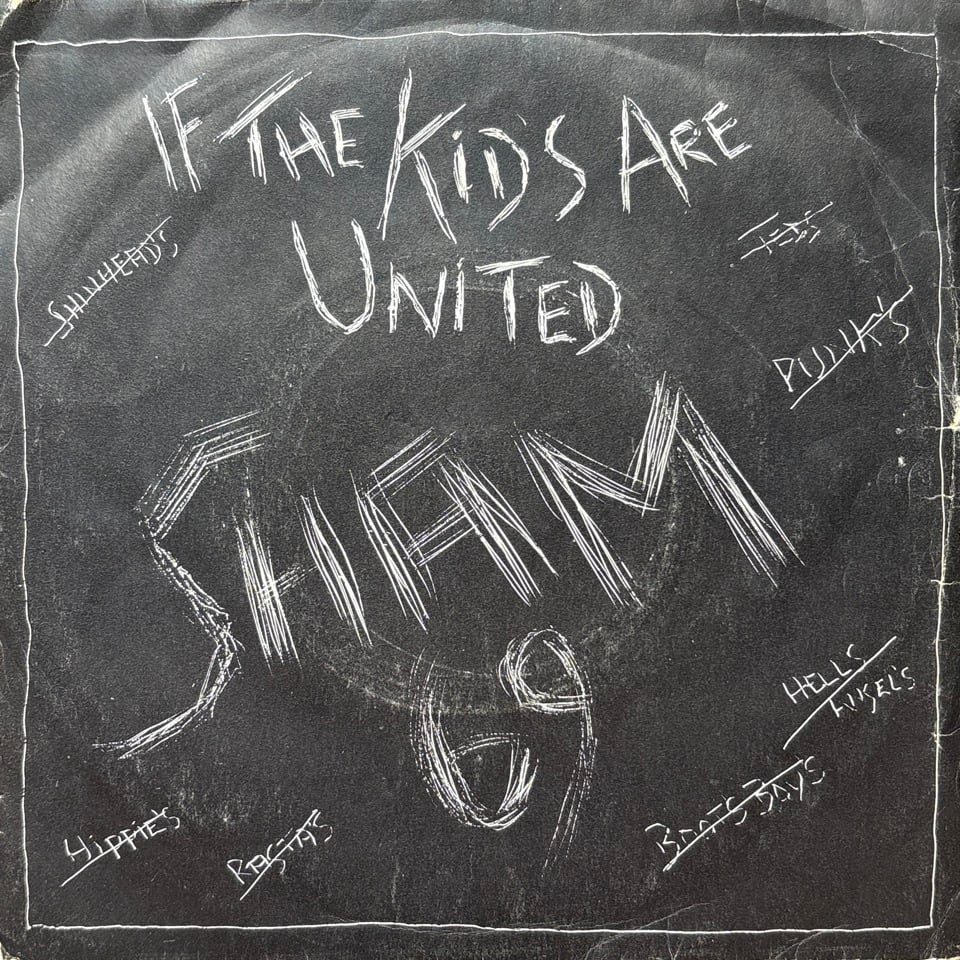 IF THE KID'S ARE
UNITED
SKINHEAD'S
TED'S
PUNK'S
SHAM
69
HELLS
ANGEL'S
BOOT'S BOYS
HIPPIE'S
RASTA'S